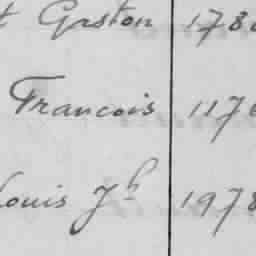 Gaston 178
Francois 117
Louis Jh 1978